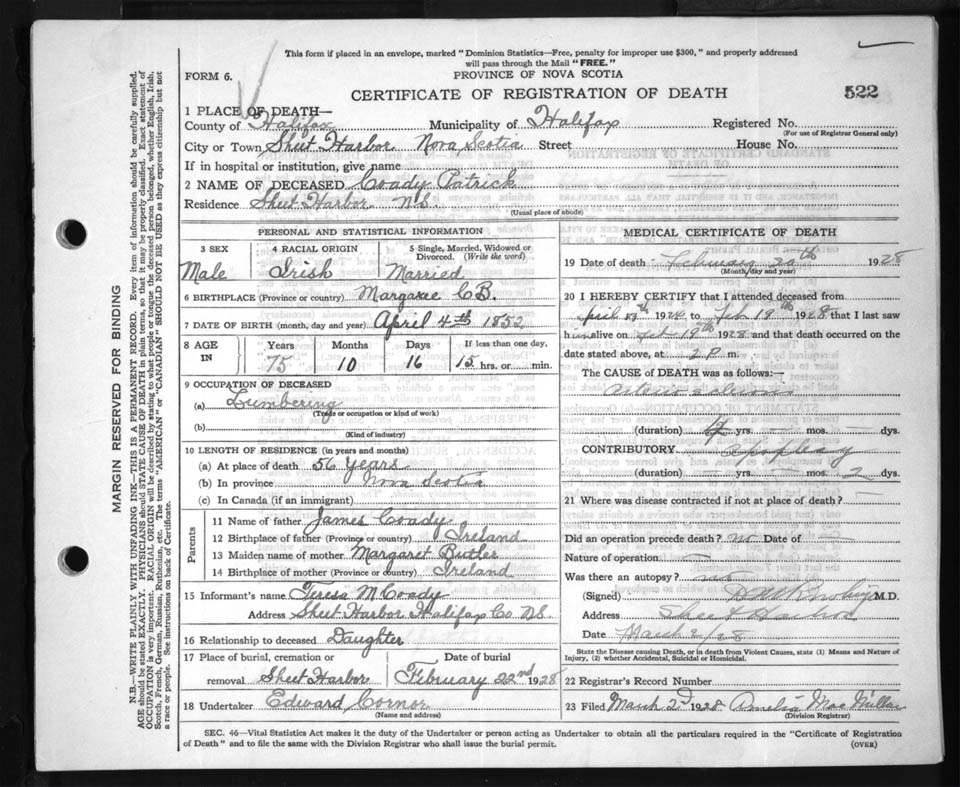 This form if placed in an envelope, marked "Dominion Statistics—Free, penalty for improper use $300," and properly addressed
will pass through the Mail "FREE."
FORM 6.
PROVINCE OF NOVA SCOTIA
CERTIFICATE OF REGISTRATION OF DEATH
522
1 PLACE OF DEATH—
County of Halifax Municipality of Halifax Registered No.
(For use of Registrar General only)
City or Town Sheet Harbor Nova Scotia Street House No.
If in hospital or institution, give name
2 NAME OF DECEASED Coady Patrick
Residence Sheet Harbor N.S.
(Usual place of abode)
PERSONAL AND STATISTICAL INFORMATION
3 SEX 4 RACIAL ORIGIN 5 Single, Married, Widowed or Divorced. (Write the word)
Male Irish Married
6 BIRTHPLACE (Province or country) Margaree C B.
7 DATE OF BIRTH (month, day and year) April 4th 1852
8 AGE IN Years Months Days If less than one day,
75 10 16 15 hrs. or min.
9 OCCUPATION OF DECEASED
(a) Lumbering
(Trade or occupation or kind of work)
(b)
(Kind of industry)
10 LENGTH OF RESIDENCE (in years and months)
(a) At place of death 56 years
(b) In province Nova Scotia
(c) In Canada (if an immigrant)
Parents
11 Name of father James Coady
12 Birthplace of father (Province or country) Ireland
13 Maiden name of mother Margaret Butler
14 Birthplace of mother (Province or country) Ireland
15 Informant's name Teresa M Coady
Address Sheet Harbor Halifax Co. N.S.
16 Relationship to deceased Daughter
17 Place of burial, cremation or removal Sheet Harbor Date of burial February 22nd 1928
18 Undertaker Edward Connor
(Name and address)
MEDICAL CERTIFICATE OF DEATH
19 Date of death February 20th 1928
(Month, day and year)
20 I HEREBY CERTIFY that I attended deceased from
April 1924 to Feb 19th 1928 that I last saw
him alive on Feb 19th 1928 and that death occurred on the
date stated above, at 2 P. m.
The CAUSE OF DEATH was as follows:—
Arterio sclerosis
(duration) yrs. — mos. — dys.
CONTRIBUTORY Apoplexy
(duration) — yrs. — mos. 2 dys.
21 Where was disease contracted if not at place of death? —
Did an operation precede death? no Date of —
Nature of operation —
Was there an autopsy? no
(Signed) M.D.
Address Sheet Harbor
Date March 2/28
State the Disease causing Death, or in death from Violent Causes, state (1) Means and Nature of
Injury, (2) whether Accidental, Suicidal or Homicidal.
22 Registrar's Record Number
23 Filed March 2d 1928. Amelia MacMillan
(Division Registrar)
SEC. 46—Vital Statistics Act makes it the duty of the Undertaker or person acting as Undertaker to obtain all the particulars required in the "Certificate of Registration
of Death" and to file the same with the Division Registrar who shall issue the burial permit.
(OVER)
MARGIN RESERVED FOR BINDING
N.B.—WRITE PLAINLY WITH UNFADING INK—THIS IS A PERMANENT RECORD. Every item of information should be carefully supplied.
AGE should be stated EXACTLY. PHYSICIANS should STATE CAUSE OF DEATH in plain terms, so that it may be properly classified. Exact statement of
OCCUPATION is very important. RACIAL ORIGIN will be described by stating to what people or tongue the deceased person belonged, whether English, Irish,
Scotch, French, German, Russian, Ruthenian, etc. The terms "AMERICAN" or "CANADIAN" SHOULD NOT BE USED as they express citizenship but not
a race or people. See instructions on back of Certificate.